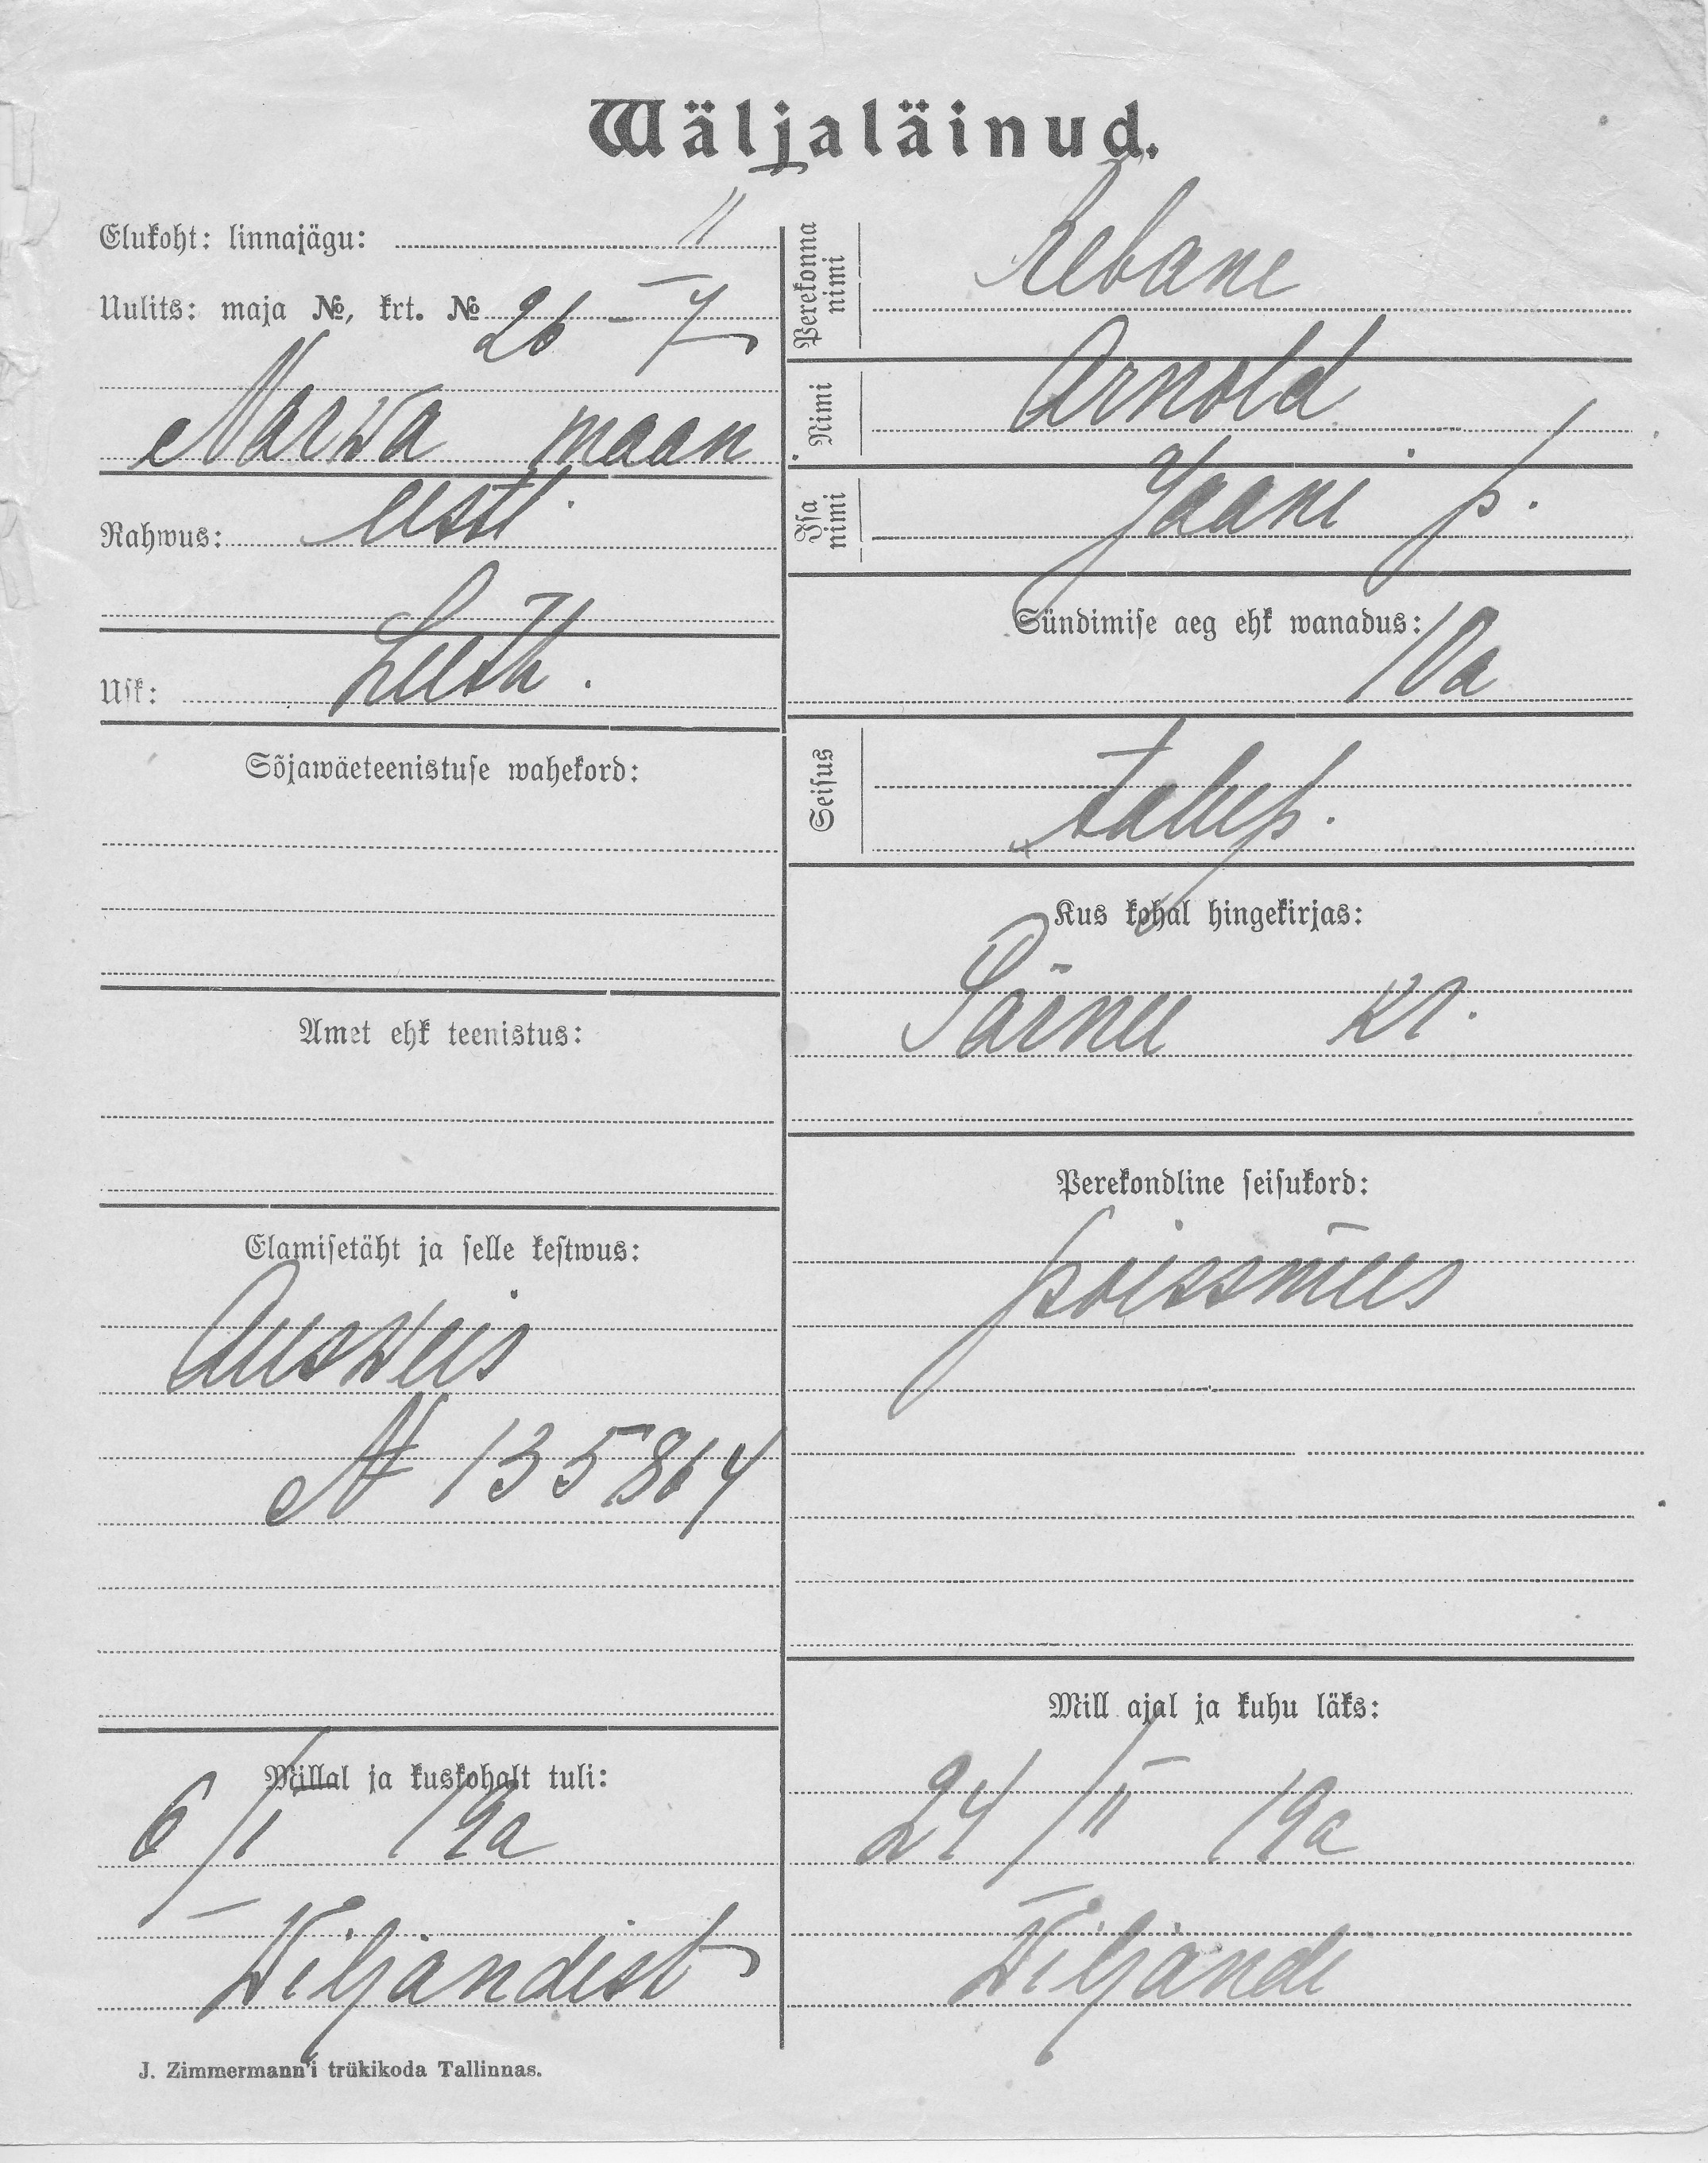 Wäljaläinud.
Elukoht: linnajägu: II
Uulits: maja №, krt. № 26 – 7
Narwa maan
Rahwus: eesti
Usk: Luth.
Sõjawäeteenistuse wahekord:
Amet ehk teenistus:
Elamisetäht ja selle kestwus:
Ausweis
№ 135864
Millal ja kuskohalt tuli:
6/I 19a
Wiljandist
Perekonna nimi Rebane
Nimi Arnold
Isa nimi Jaani p.
Sündimise aeg ehk wanadus:
10a
Seisus talup.
Kus kohal hingekirjas:
Pärnu kr.
Perekondline seisukord:
poissmees
Mill ajal ja kuhu läks:
24/II 19a
Wiljandi
J. Zimmermann'i trükikoda Tallinnas.